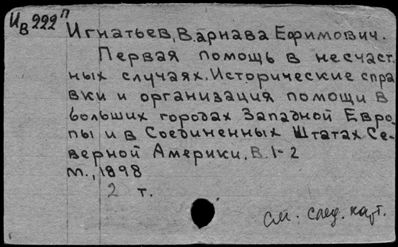 Ив 222 п
Игнатьев, Варнава Ефимович.
Первая помощь в несчаст
ных случаях. Исторические спра
вки и организация помощи в
больших городах Западной Евро
пы и в Соединенных Штатах Се-
верной Америки. В. 1-2
М., 1898
2 т.
См. след. карт.